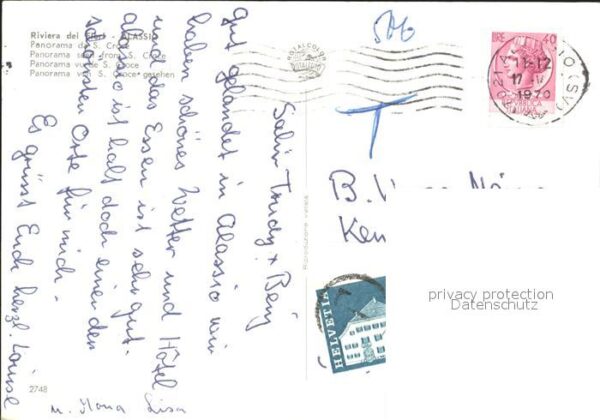 Riviera dei Fiori - ALASSIO
Panorama da S. Croce
Panorama vu de S. Croce
Panorama von S. Croce gesehen
Trudy + Beny
gut gelandet in Alassio wir
haben schönes Wetter und Hotel
und das Essen ist sehr gut.
Alassio ist halt doch einer der
schönsten Orte für mich.
Es grüsst Euch herzl. Louise
u. Ilona Lisa
2748
Riproduzione vietata
ROTALCOLOR
T
LIRE 40
11-12
17. IV
1970
B.
Ken
HELVETIA
privacy protection
Datenschutz